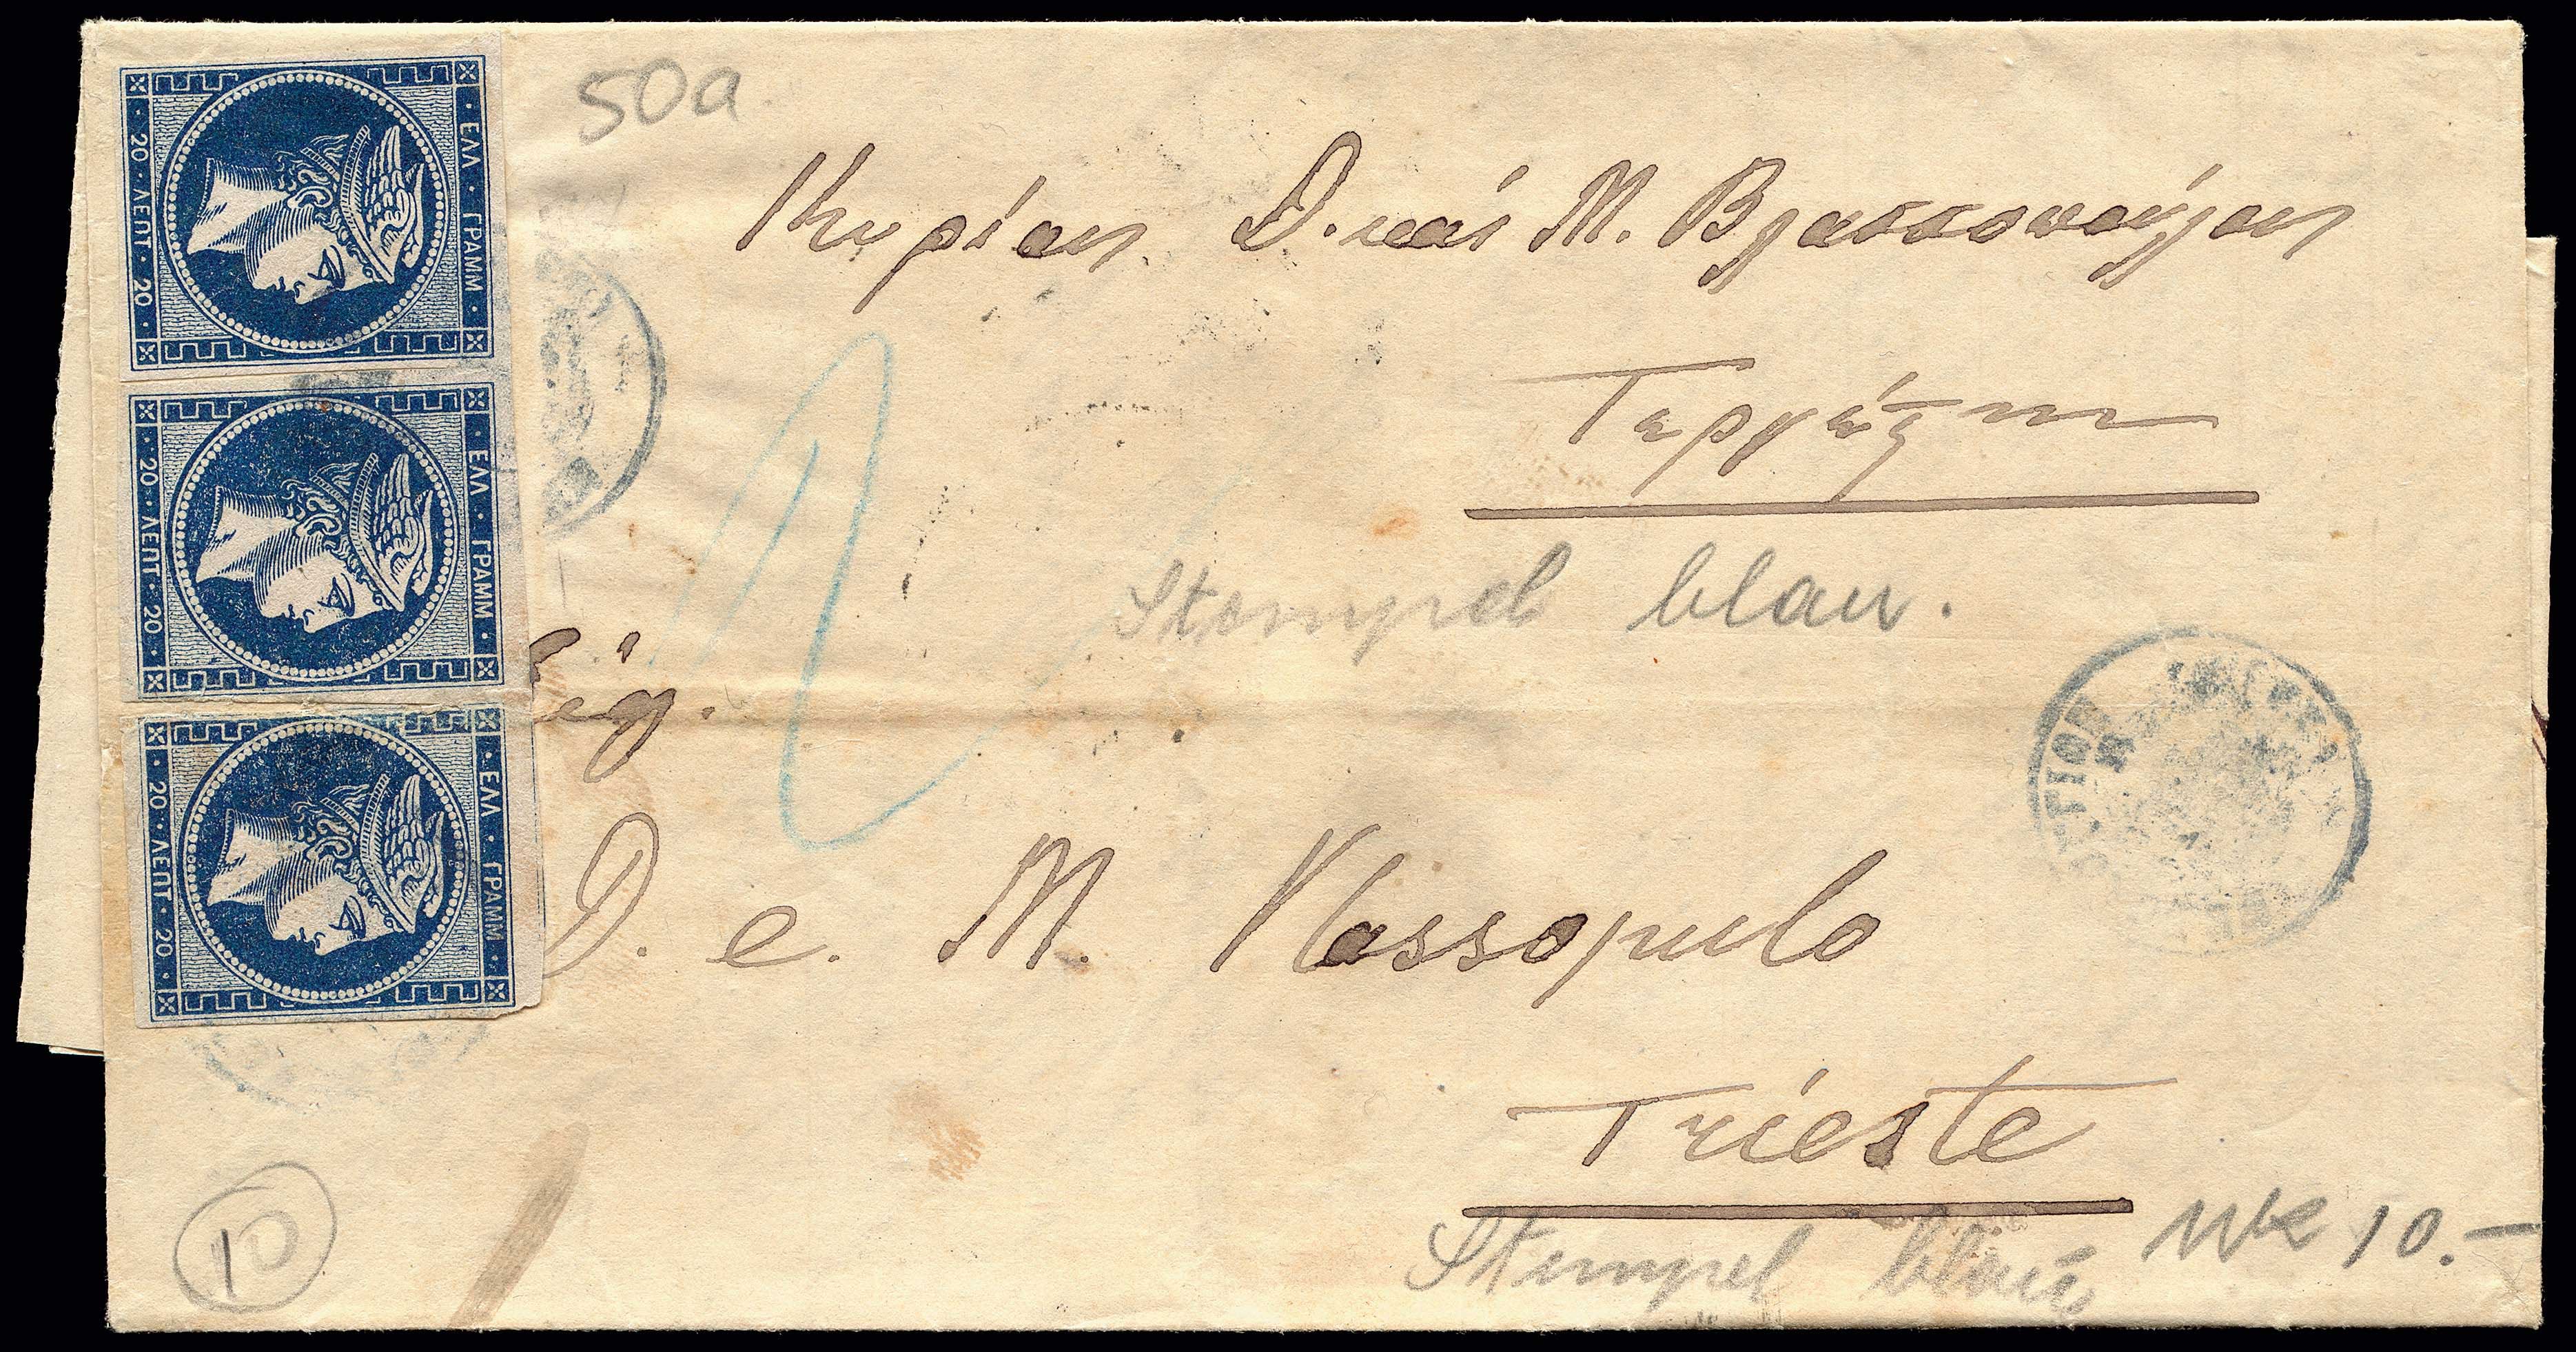 50a
ΕΛΛ · ΓΡΑΜΜ ·
20 · ΛΕΠΤ · 20
ΕΛΛ · ΓΡΑΜΜ ·
20 · ΛΕΠΤ · 20
ΕΛΛ · ΓΡΑΜΜ ·
20 · ΛΕΠΤ · 20
Κυρίους Δ. καί Μ. Βλασσοπούλους
Stempel blau.
Sig.
D. e. M. Vlassopulo
Trieste
Stempel blau Mk 10.-
10